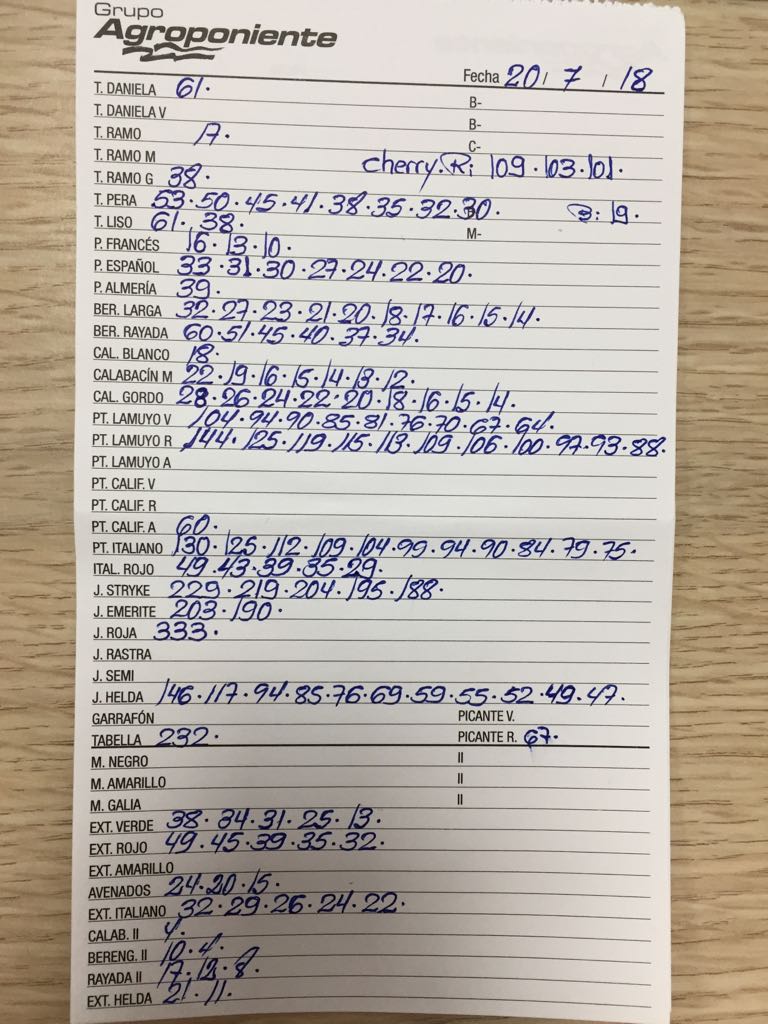 Grupo
Agroponiente
Fecha 20 / 7 / 18
T. DANIELA 61.
B-
T. DANIELA V
B-
T. RAMO 17.
C-
T. RAMO M
cherry.R: 109.103.101.
T. RAMO G 38.
T. PERA 53.50.45.41.38.35.32.30.
B: 19.
T. LISO 61. 38.
M-
P. FRANCÉS 16.13.10.
P. ESPAÑOL 33.31.30.27.24.22.20.
P. ALMERÍA 39.
BER. LARGA 32.27.23.21.20.18.17.16.15.14.
BER. RAYADA 60.51.45.40.37.34.
CAL. BLANCO 18.
CALABACÍN M 22.19.16.15.14.13.12.
CAL. GORDO 28.26.24.22.20.18.16.15.14.
PT. LAMUYO V 104.94.90.85.81.76.70.67.64.
PT. LAMUYO R 144.125.119.115.113.109.106.100.97.93.88.
PT. LAMUYO A
PT. CALIF. V
PT. CALIF. R
PT. CALIF. A 60.
PT. ITALIANO 130.125.112.109.104.99.94.90.84.79.75.
ITAL. ROJO 49.43.39.35.29.
J. STRYKE 229.219.204.195.188.
J. EMERITE 203.190.
J. ROJA 333.
J. RASTRA
J. SEMI
J. HELDA 146.117.94.85.76.69.59.55.52.49.47.
GARRAFÓN PICANTE V.
TABELLA 232. PICANTE R. 67.
M. NEGRO II
M. AMARILLO II
M. GALIA II
EXT. VERDE 38.34.31.25.13.
EXT. ROJO 49.45.39.35.32.
EXT. AMARILLO
AVENADOS 24.20.15.
EXT. ITALIANO 32.29.26.24.22.
CALAB. II 4.
BERENG. II 10.4.
RAYADA II 17.12.8.
EXT. HELDA 21.11.